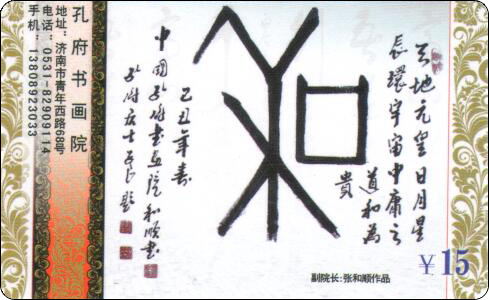 孔府书画院
地址:济南市青年西路68号
电话:0531-82909114
手机:13808923033
和
天地元皇日月星
辰環宇宙中庸之
道和為
貴
己丑年春
中國孔府書画院和順書
副院长:张和顺作品
￥15